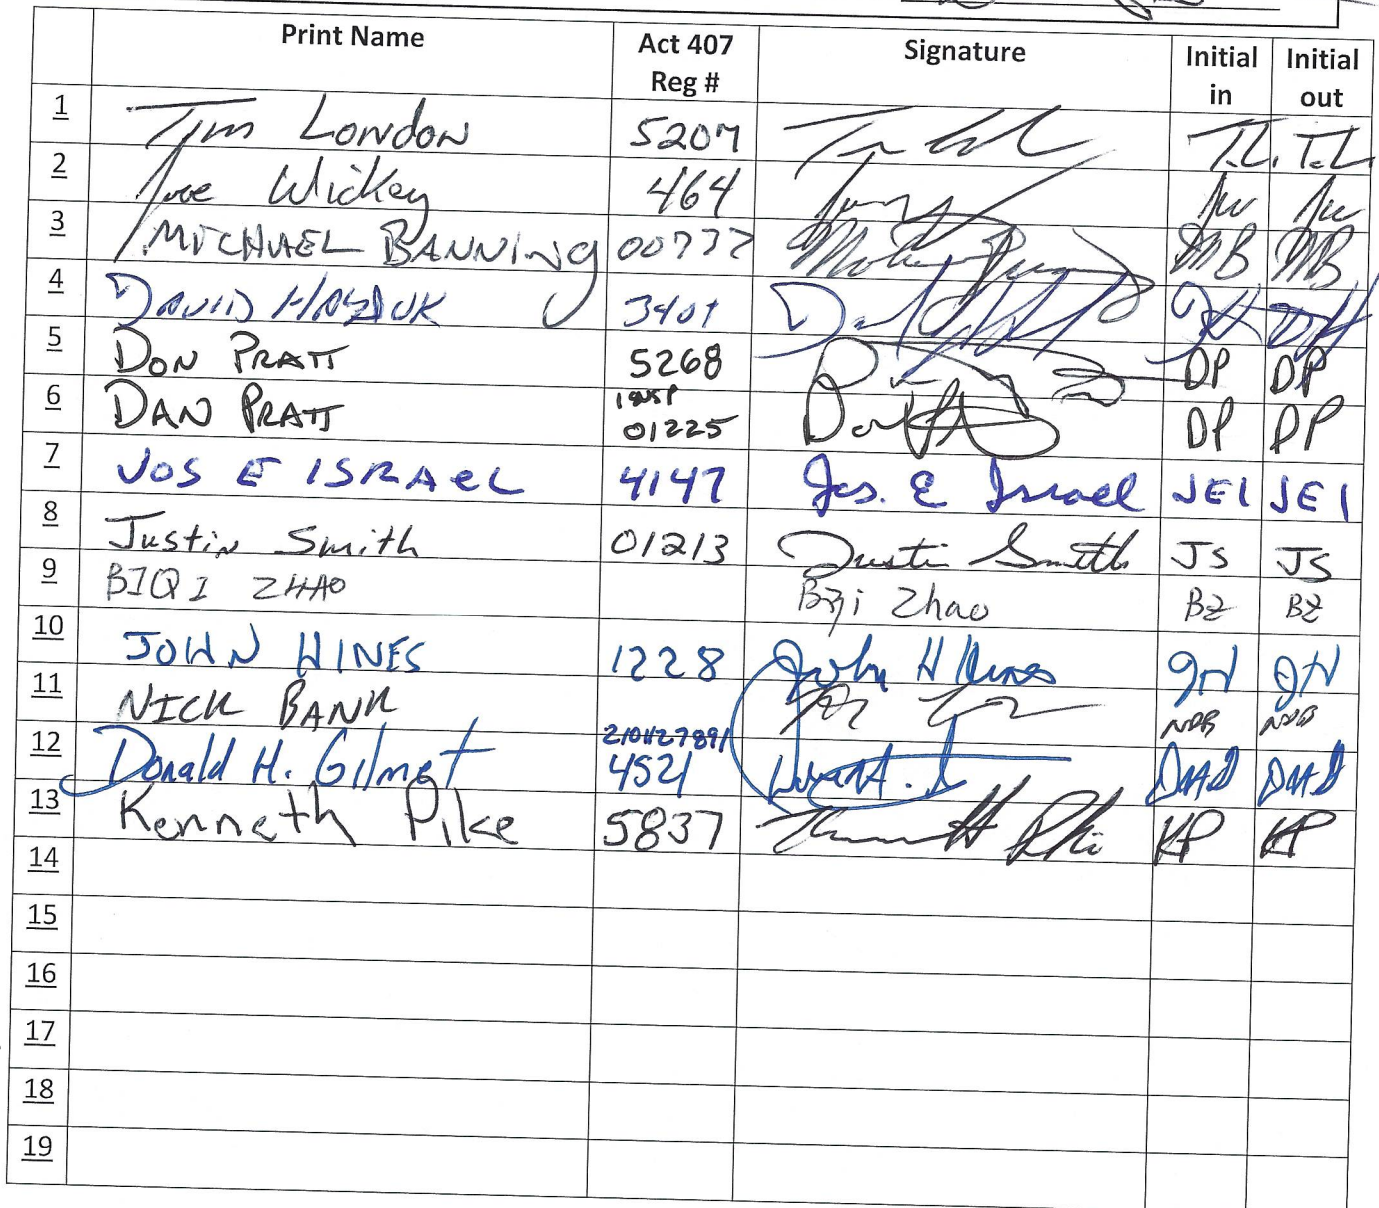 Print Name Act 407 Reg # Signature Initial in Initial out
1 Tim London 5207 T.L. T.L.
2 Joe Wickey 464 JW JW
3 MICHAEL BANNING 00737 MB MB
4 DAVID 3401 DH DH
5 DON PRATT 5268 DP DP
6 DAN PRATT INSP 01225 DP DP
7 JOS E ISRAEL 4147 Jos. E Israel JEI JEI
8 Justin Smith 01213 Justin Smith JS JS
9 BIQI ZHAO Biqi Zhao BZ BZ
10 JOHN HINES 1228 John H Hines JH JH
11 NICK BANK NDB NDB
12 Donald H. Gilmet 2101127891 4521
13 Kenneth Pike 5837 KP KP
14
15
16
17
18
19